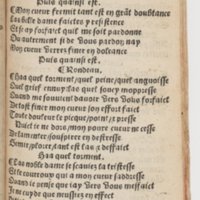 Puis quainsi est.
Mon cueur fremit tant est en grāt doubtance
La belle dame faictes y resistence
Et se ay forfaict quil me soit pardonne
Ou autrement si de vous pardon nay
Mon cueur verrez finer en doleance
Puis quainsi est.
Rondeau.
Haa quel torment quel peine quel anguoisse
Quel grief ennuy las quel soucy moppresse
Quant me souuient dauoir vers vous forfaict
De tost finir mon cueur son effort faict
Toute douleur le picque point presse
Dueil ie ne doy mon poure cueur ne cesse
De lamenter souspirer en destresse
Gemir plorer tant est las desfaict
Haa quel torment.
Tau noble dame se scauiez la tristesse
Et se courroux qui a mon cueur sadresse
Quand ie pense que iay vers vous meffaict
Je ne cuyde que neussiez en effect